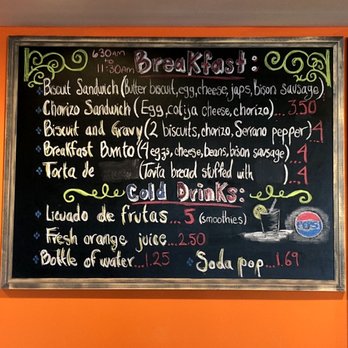 630AM
TO
11:30AM
Breakfast:
Biscuit Sandwich (Butter biscuit, egg, cheese, japs, bison sausage)
Chorizo Sandwich (Egg, cotija cheese, chorizo)...3.50
Biscuit and Gravy (2 biscuits, chorizo, Serano pepper)..4
Breakfast Burrito (4 eggs, cheese, beans, bison sausage)...4
Torta de (Torta bread stuffed with )...4
Cold Drinks:
Licuado de frutas...5 (smoothies)
Fresh orange juice...2.50
Bottle of water...1.25 Soda pop...1.69
PEPSI